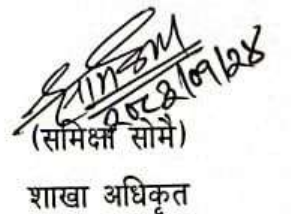 २०८२/०९/२४
(समिक्षा सोमै)
शाखा अधिकृत